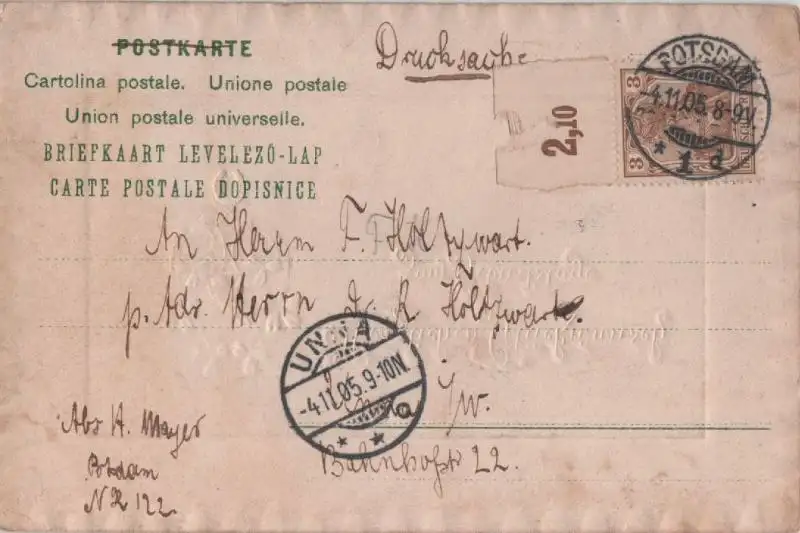 POSTKARTE
Cartolina postale. Unione postale
Union postale universelle.
BRIEFKAART LEVELEZÖ-LAP
CARTE POSTALE DOPISNICE
Drucksache
2,10
3 3
POTSDAM
-4.11.05. 8-9V.
* 1 d
An Herrn F. Holtzwart.
p. Adr. Herrn R Holtzwart.
UNNA
-4.11.05. 9-10N.
* a *
i/W.
Bahnhofstr 22.
Abs H. Mayer
Potsdam